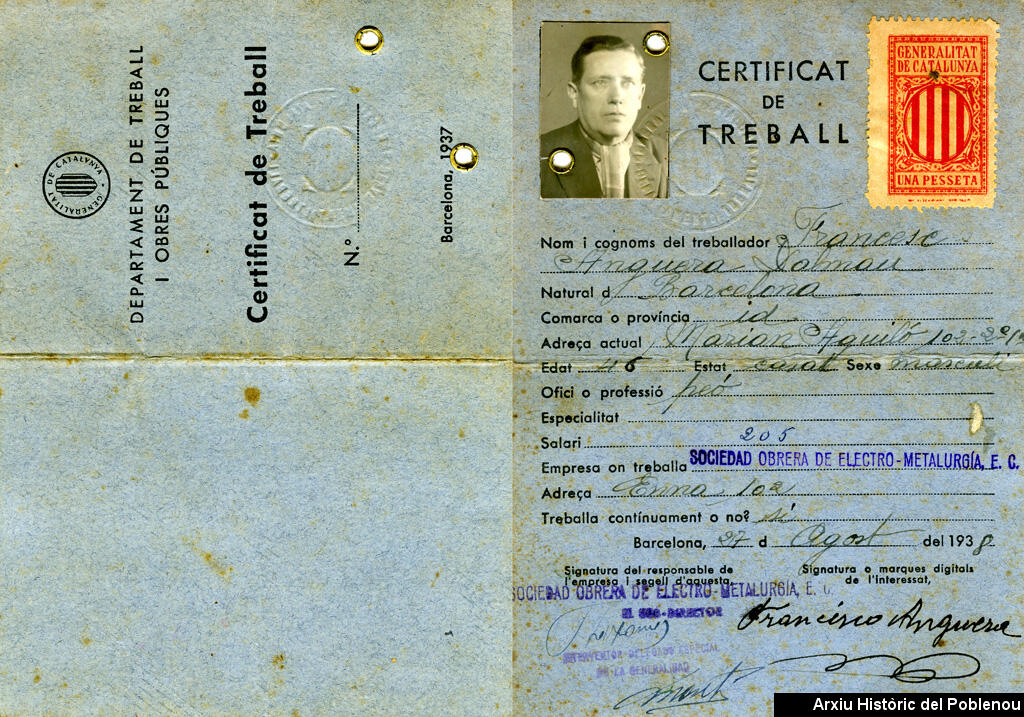 GENERALITAT DE CATALUNYA
DEPARTAMENT DE TREBALL
I OBRES PÚBLIQUES
Certificat de Treball
N.º
Barcelona, 1937
CERTIFICAT
DE
TREBALL
GENERALITAT
DE CATALUNYA
UNA PESSETA
Nom i cognoms del treballador Francesc
Anguera Dalmau
Natural d Barcelona
Comarca o província id.
Adreça actual Marian Aguiló 102-2º
Edat 46 Estat casat Sexe masculí
Ofici o professió peó
Especialitat
Salari 205
Empresa on treballa SOCIEDAD OBRERA DE ELECTRO-METALURGÍA, E. C.
Adreça Enna 102
Treballa contínuament o no? sí
Barcelona, 27 d Agost del 1938
Signatura del responsable de
l'empresa i segell d'aquesta,
Signatura o marques digitals
de l'interessat,
SOCIEDAD OBRERA DE ELECTRO-METALURGÍA, E. C.
EL SUB-DIRECTOR
Francisco Anguera
INTERVENTOR DELEGADO ESPECIAL
DE LA GENERALIDAD
Arxiu Històric del Poblenou